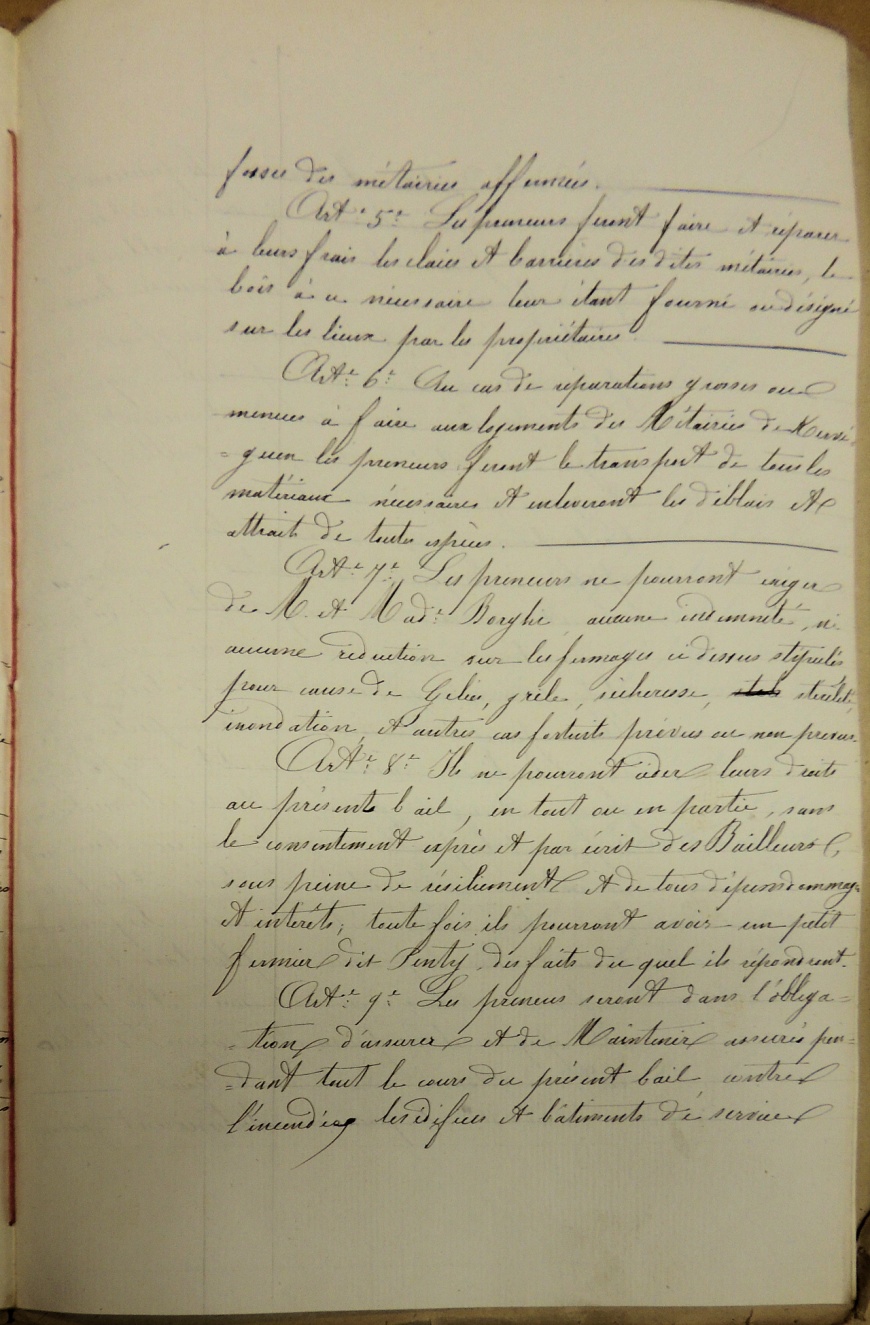 fosses des métairies affermées.
Art.e 5.e Les preneurs feront faire et réparer
à leurs frais les claies et barrières des dites métairies, le
bois à ce nécessaire leur étant fourni ou désigné
sur les lieux par les propriétaires.
Art.e 6.e Au cas de réparations grosses ou
menues à faire aux logements des Métairies de Kervé-
=guen les preneurs feront le transport de tous les
matériaux nécessaires et enleveront les déblais et
attrait de toutes espèces.
Art.e 7.e Les preneurs ne pourront exiger
de M. et Mad.e Borghe, aucune indemnité, ni
aucune réduction sur les fermages ci dessus stipulés
pour cause de Gelée, grêle, sècheresse, stérilité,
inondation, et autres cas fortuits prévus ou non prévus.
Art.e 8.e Ils ne pourront céder leurs droits
au présent bail, en tout ou en partie, sans
le consentement exprès et par écrit des Bailleurs,
sous peine de résiliement et de tous dépens dommag.
et intérêts; toute fois ils pourront avoir un petit
fermier dit Penty, des faits du quel ils répondront.
Art.e 9.e Les preneurs seront dans l'obliga=
=tion d'assurer et de Maintenir assurés pen=
=dant tout le cours du présent bail contre
l'incendie, les édifices et bâtiments de service